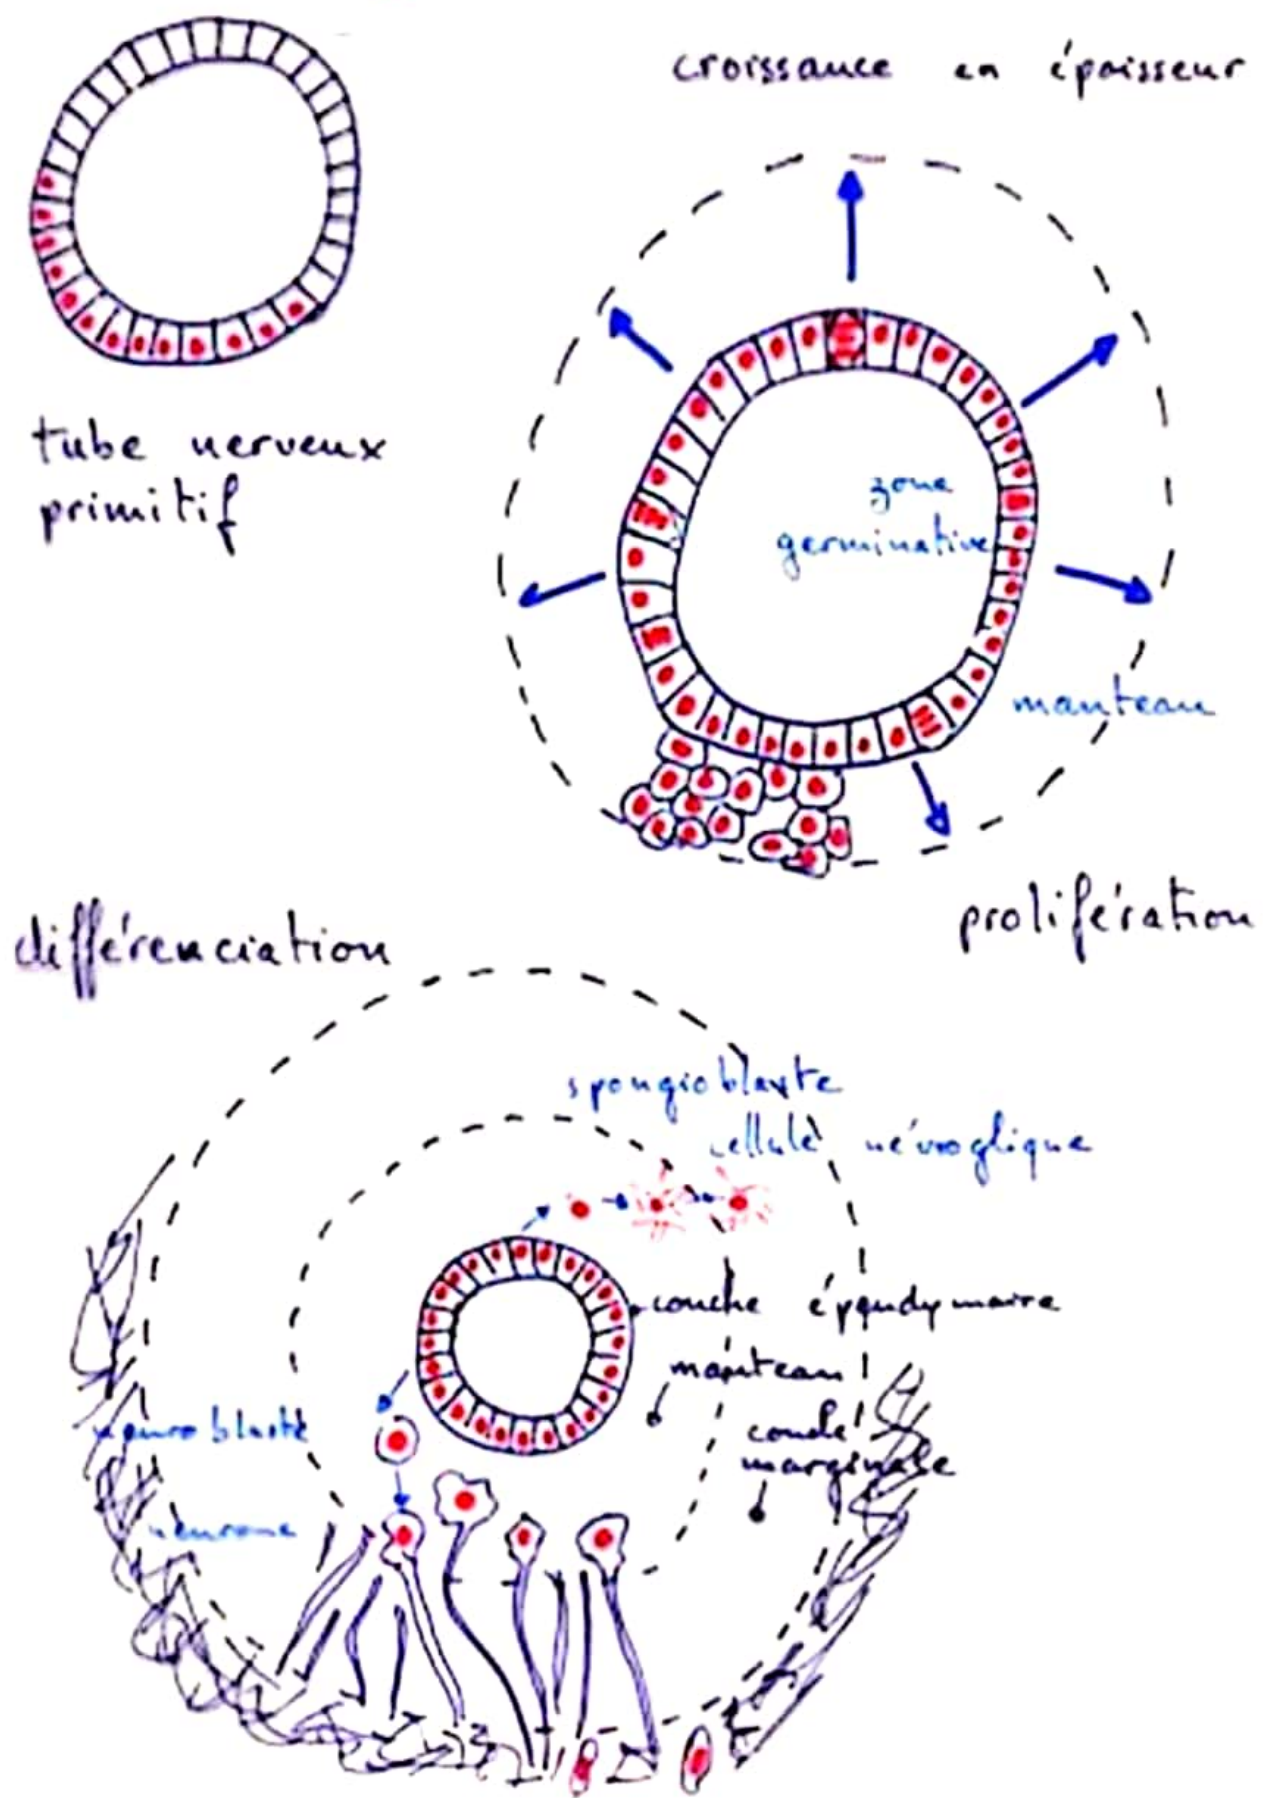 croissance en épaisseur
tube nerveux
primitif
zone
germinative
manteau
prolifération
différenciation
spongioblaste
cellule névroglique
couche épendymaire
manteau
couche
marginale
neuroblaste
neurone